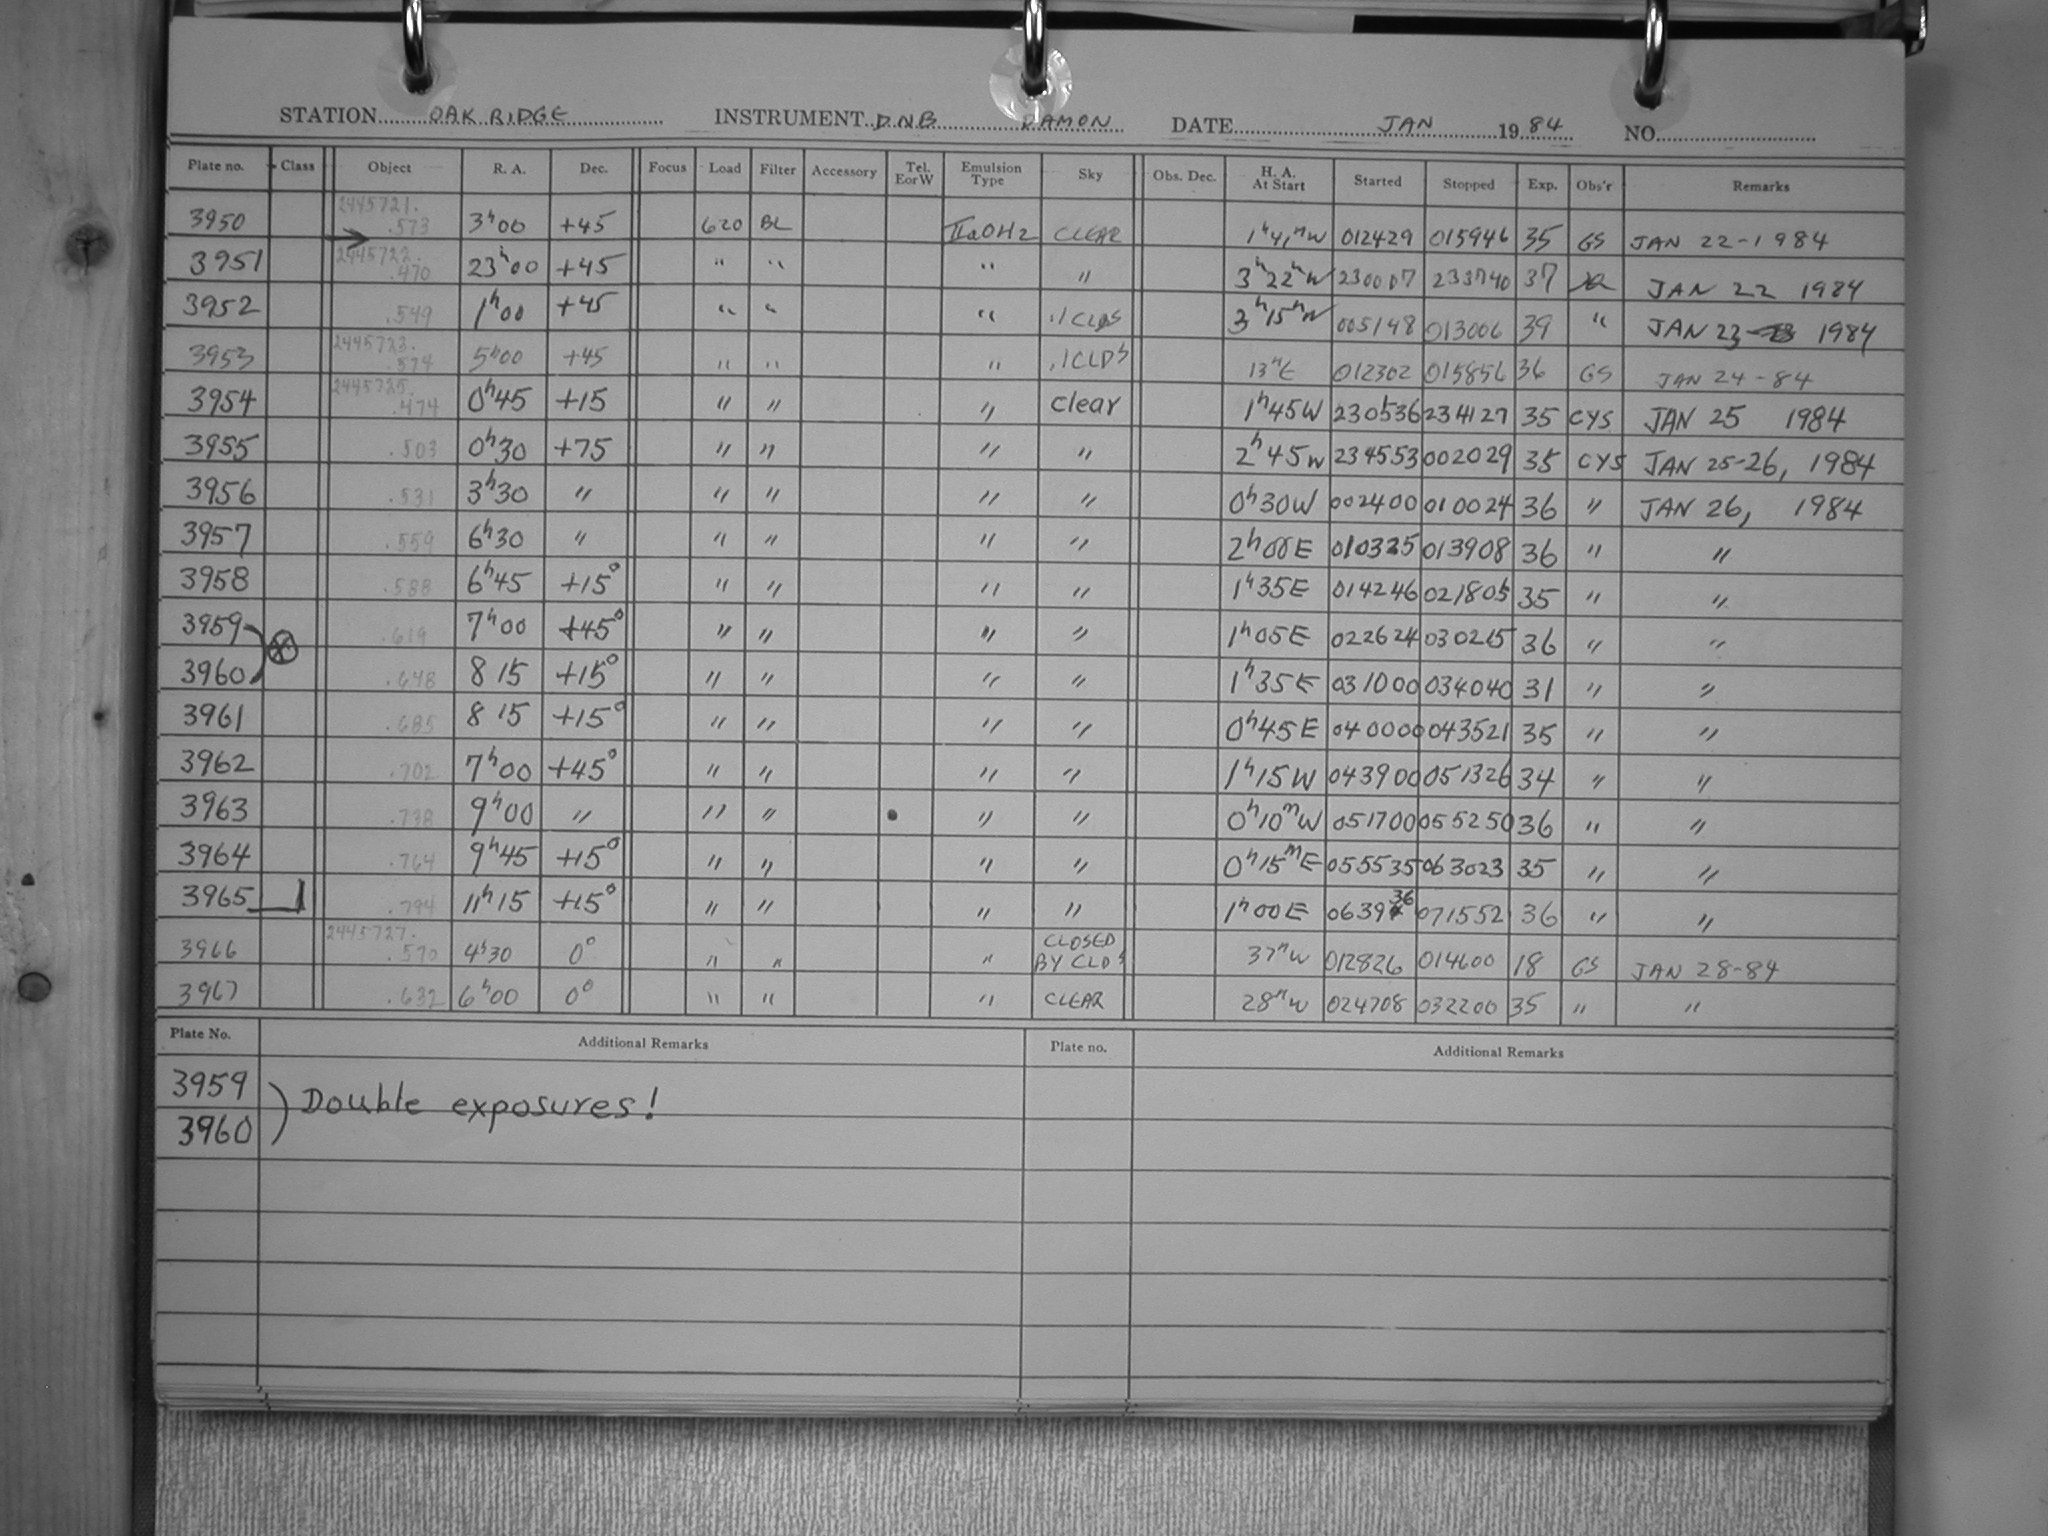 STATION OAK RIDGE INSTRUMENT DNB DAMON DATE JAN 19 84 NO.
Plate no. Class Object R. A. Dec. Focus Load Filter Accessory Tel. E or W Emulsion Type Sky Obs. Dec. H. A. At Start Started Stopped Exp. Obs'r Remarks
3950 2445721. .573 3h00 +45 620 BL IIaOH2 CLEAR 1h41mW 012429 015946 35 GS JAN 22-1984
3951 2445722. .470 23h00 +45 " " " " 3h22mW 230007 233740 37 JAN 22 1984
3952 .549 1h00 +45 " " " .1 CLDS 3h15mW 005148 013006 39 " JAN 23 1984
3953 2445723. .574 5h00 +45 " " " .1 CLDS 13mE 012302 015856 36 GS JAN 24-84
3954 2445725. .474 0h45 +15 " " " Clear 1h45W 230536 234127 35 CYS JAN 25 1984
3955 .503 0h30 +75 " " " " 2h45W 234553 002029 35 CYS JAN 25-26, 1984
3956 .531 3h30 " " " " " 0h30W 002400 010024 36 " JAN 26, 1984
3957 .559 6h30 " " " " " 2h00E 010325 013908 36 " "
3958 .588 6h45 +15° " " " " 1h35E 014246 021805 35 " "
3959 .619 7h00 +45° " " " " 1h05E 022624 030215 36 " "
3960 .648 8 15 +15° " " " " 1h35E 031000 034040 31 " "
3961 .685 8 15 +15° " " " " 0h45E 040000 043521 35 " "
3962 .702 7h00 +45° " " " " 1h15W 043900 051326 34 " "
3963 .738 9h00 " " " " " 0h10mW 051700 055250 36 " "
3964 .764 9h45 +15° " " " " 0h15mE 055535 063023 35 " "
3965 .794 11h15 +15° " " " " 1h00E 063936 071552 36 " "
3966 2445727. .570 4h30 0° " " " CLOSED BY CLDS 37mW 012826 014600 18 GS JAN 28-84
3967 .632 6h00 0° " " " CLEAR 28mW 024708 032200 35 " "
Plate No. Additional Remarks Plate no. Additional Remarks
3959
3960 Double exposures!